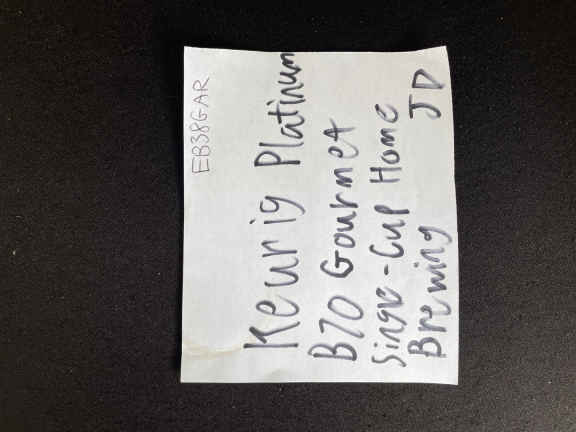 EB38GAR
Keurig Platinum
B70 Gourmet
Single-Cup Home
Brewing JD